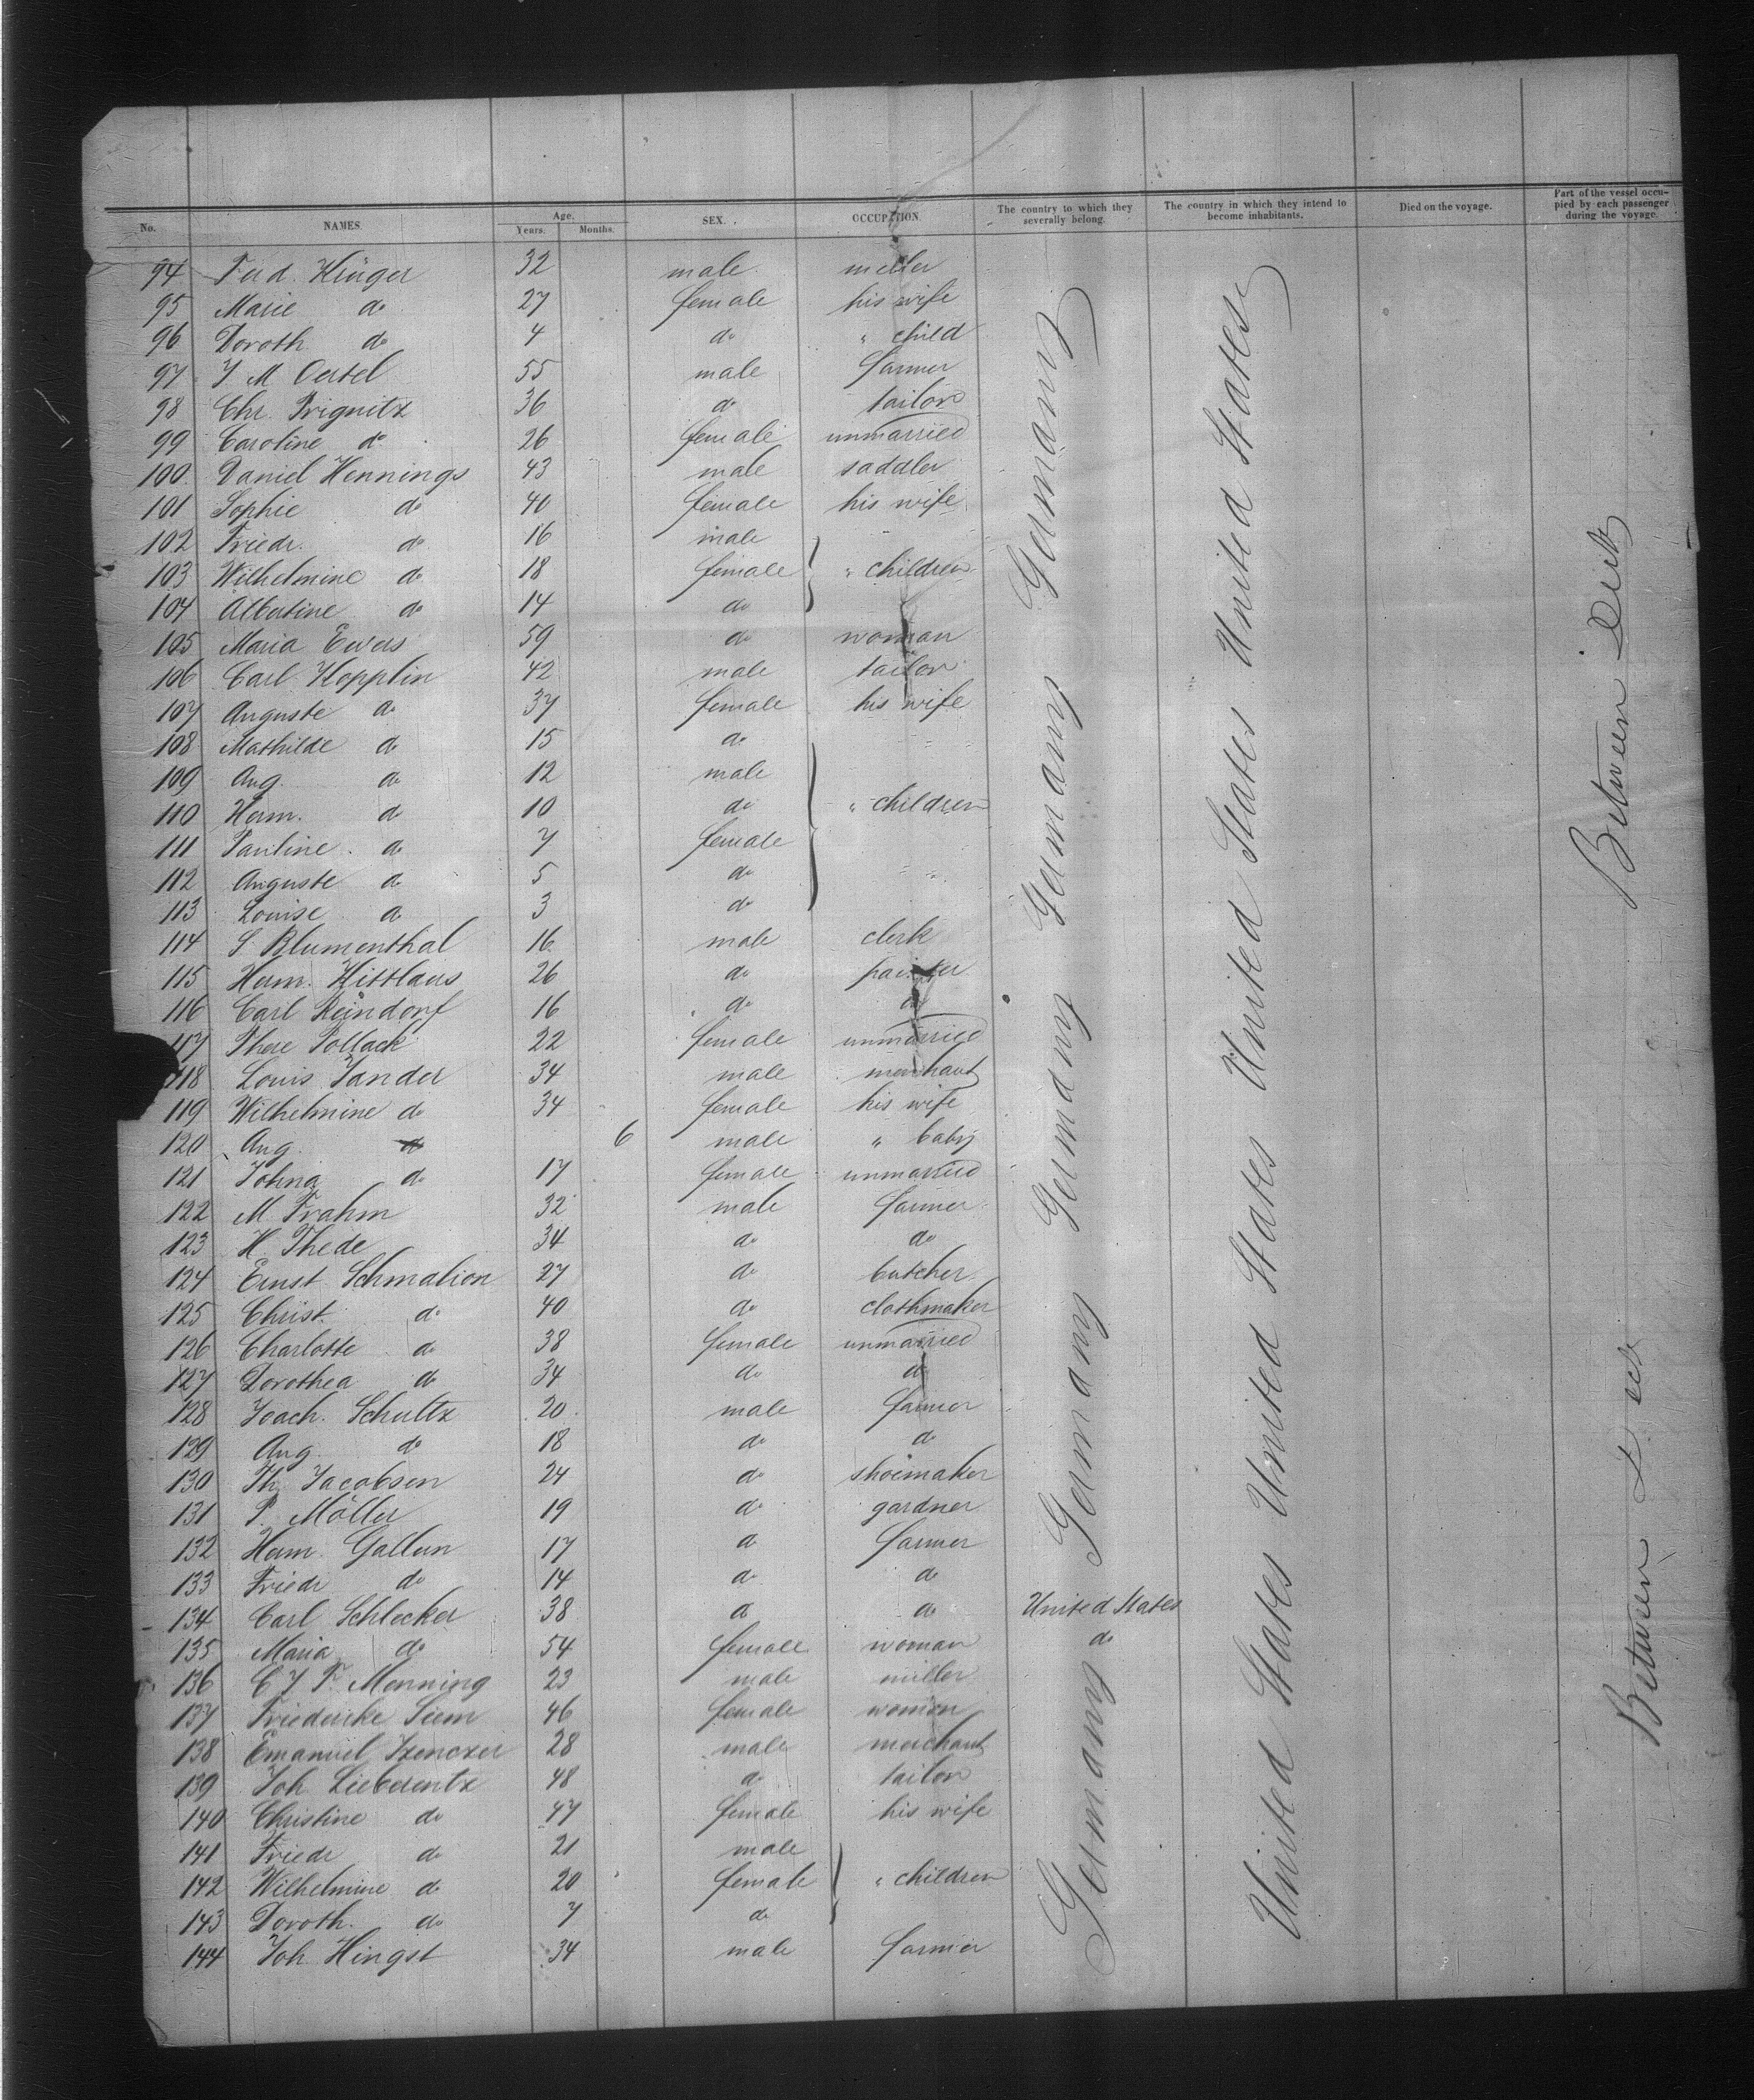 No. NAMES. Age. Years. Months. SEX. OCCUPATION. The country to which they severally belong. The country in which they intend to become inhabitants. Died on the voyage. Part of the vessel occupied by each passenger during the voyage.
94 Ferd. Krüger 32 male miller
95 Marie do 27 female his wife
96 Doroth do 4 do " child
97 J M Oertel 55 male farmer
98 Chr. Prignitz 36 do tailor
99 Caroline do 26 female unmarried
100 Daniel Hennings 43 male saddler
101 Sophie do 40 female his wife
102 Friedr. do 16 male
103 Wilhelmine do 18 female " children
104 Albertine do 14 do
105 Maria Ewers 59 do woman
106 Carl Kopplin 42 male tailor
107 Auguste do 37 female his wife
108 Mathilde do 15 do
109 Aug. do 12 male
110 Herm. do 10 do " children
111 Pauline do 7 female
112 Auguste do 5 do
113 Louise do 3 do
114 S Blumenthal 16 male clerk
115 Herm. Kittlaus 26 do painter
116 Carl Reindorf 16 do do
117 There Pollack 22 female unmarried
118 Louis Zander 34 male merchant
119 Wilhelmine do 34 female his wife
120 Aug. do 6 male " baby
121 Johna do 17 female unmarried
122 M. Frahm 32 male farmer
123 H. Thede 34 do do
124 Ernst Schmalion 27 do butcher
125 Christ. do 40 do clothmaker
126 Charlotte do 38 female unmarried
127 Dorothea do 34 do do
128 Joach. Schultz 20 male farmer
129 Aug do 18 do do
130 Th. Jacobsen 24 do shoemaker
131 P. Möller 19 do gardner
132 Herm. Gallun 17 do farmer
133 Friedr do 14 do do
134 Carl Schlecker 38 do do United States
135 Maria do 54 female woman do
136 C J F. Menning 23 male miller
137 Friedericke Siem 46 female women
138 Emanuel Szenczer 28 male merchant
139 Joh Lieberentz 48 do tailor
140 Christine do 47 female his wife
141 Friedr do 21 male
142 Wilhelmine do 20 female " children
143 Doroth. do 7 do
144 Joh. Hingst 34 male farmer
Germany Germany Germany Germany Germany Germany
United States United States United States United States United States
Between Deck Between Deck